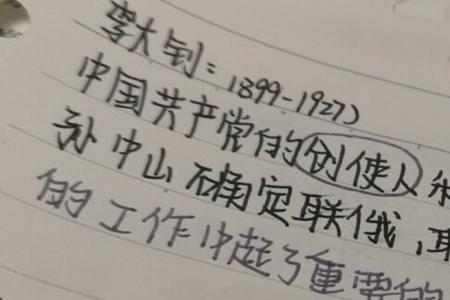 李大钊:1899-1927)
中国共产党的创使人
孙中山确定联俄,联
的工作中起了重要的